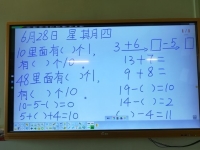 6月28日 星期四
10里面有( )个1,
有( )个10
48里面有( )个1,
有( )个10.
10-5-( )=0
5+( )+4=10
3+6 □=5 □
13+7=
9+8=
19-( )=10
14-( )=2
( )-4=11